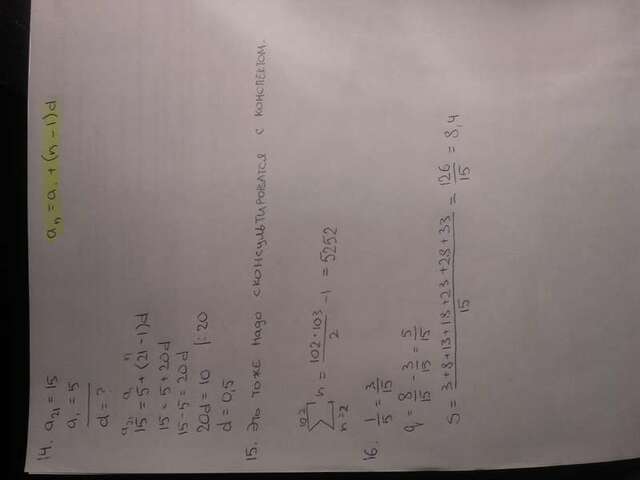 14. a₂₁ = 15
a₁ = 5
d = ?
aₙ = a₁ + (n - 1)d
a₂₁ a₁ n
15 = 5 + (21 - 1)d
15 = 5 + 20d
15 - 5 = 20d
20d = 10 |: 20
d = 0,5
15. Это тоже надо сконсультироватся с конспектом.
102 ∑ n=2 n = 102·103/2 - 1 = 5252
16. 1/5 = 3/15
q = 8/15 - 3/15 = 5/15
S = 3+8+13+18+23+28+33/15 = 126/15 = 8,4